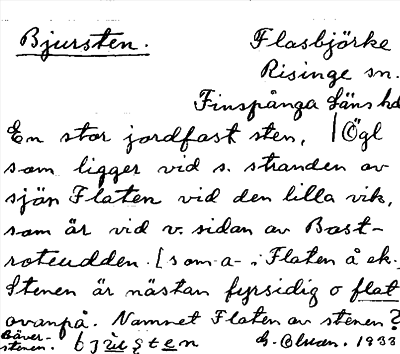 Bjursten. Flasbjörke
Risinge sn.
Finspånga läns hd
En stor jordfast sten, Ögl
som ligger vid s. stranden av
sjön Flaten vid den lilla vik,
som är vid v. sidan av Bast-
roteudden. [som a i Flaten å ek.
Stenen är nästan fyrsidig o flat
ovanpå. Namnet Flaten av stenen?
Bäver-
stenen. 1933